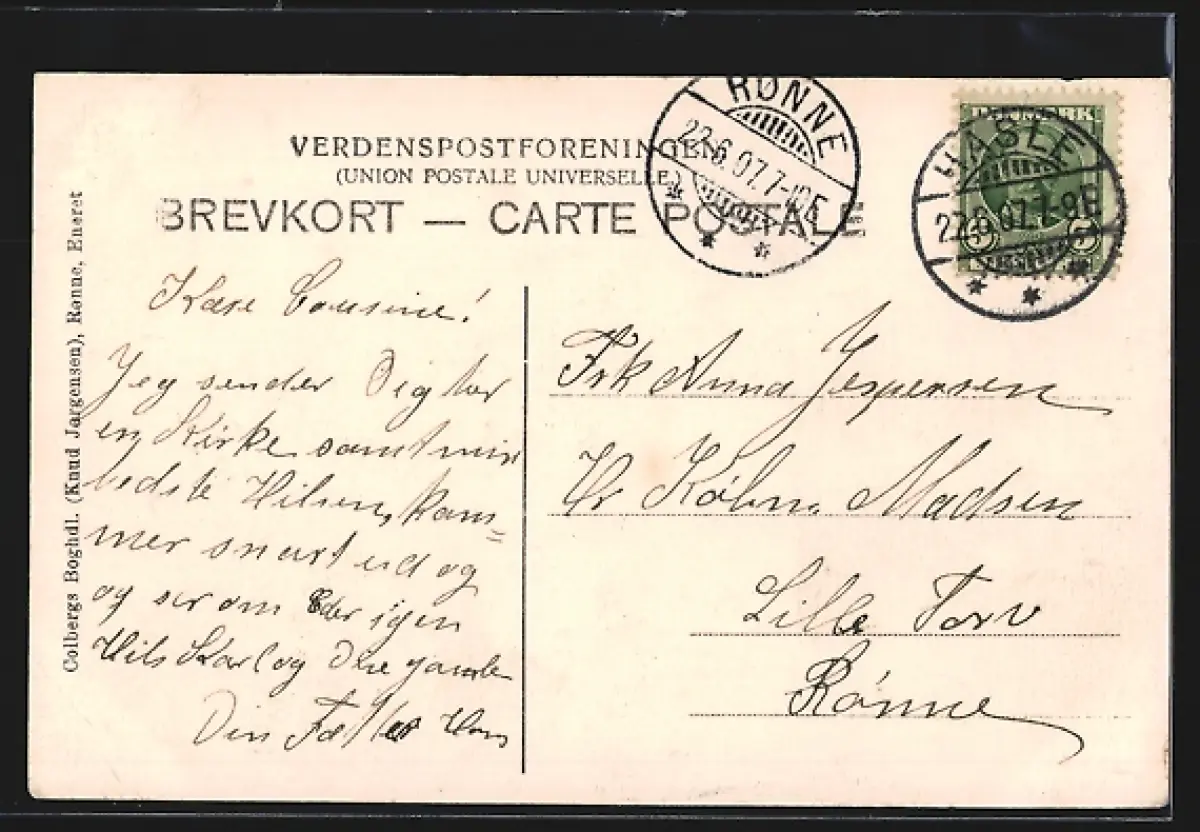 VERDENSPOSTFORENINGEN
(UNION POSTALE UNIVERSELLE.)
BREVKORT — CARTE POSTALE
RØNNE
22.6.07.7-10E
HASLE
22.6.07.7-9E
DANMARK
5 5
Colbergs Boghdl. (Knud Jørgensen), Rønne, Eneret
Kære Cousine!
Jeg sender Dig her
en Kirke samt min
bedste Hilsen, kom=
mer snart ud og
og ser om Eder igen
Hils Karl og Dine gamle
Din Fætter Hans
Frk Anna Jespersen
Hr Købm. Madsen
Lille Torv
Rønne